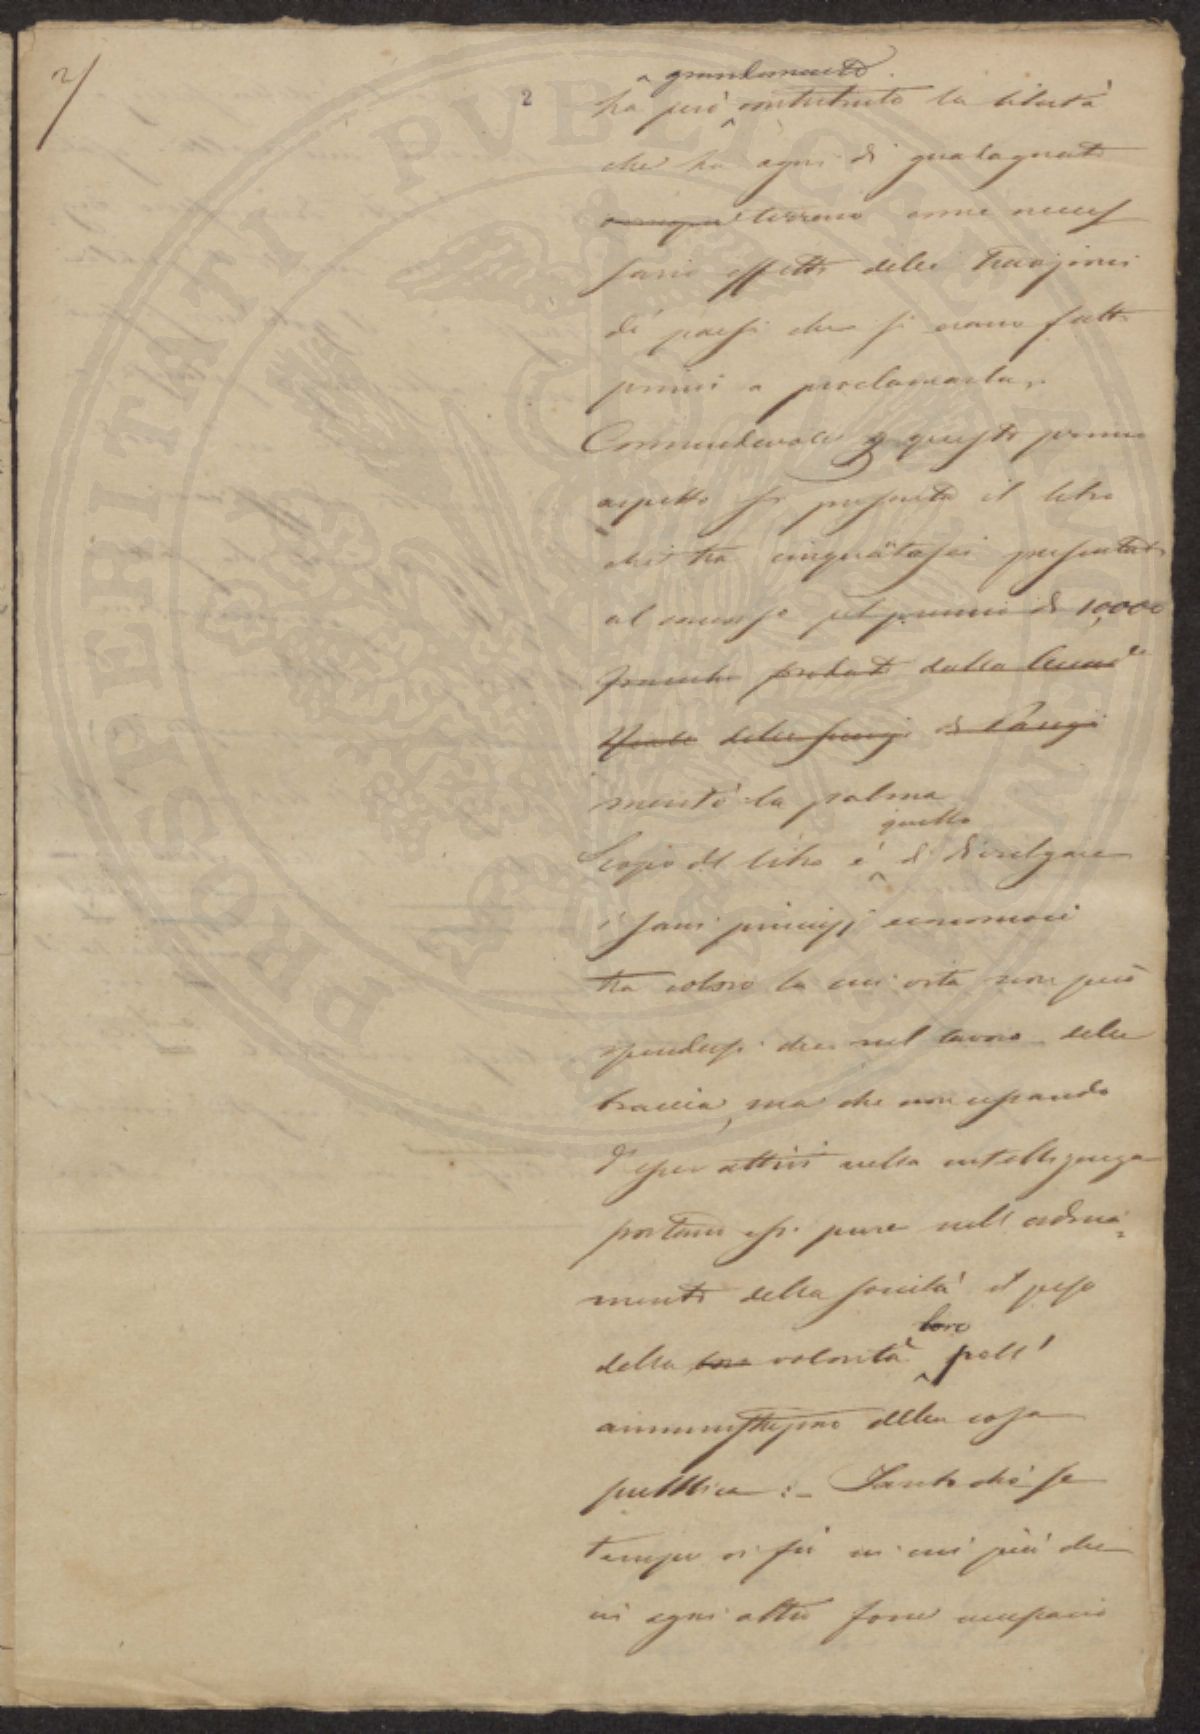 2/
2
grandemente
ha però contribuito la libertà
che ha ogni dì guadagnato
terreno come neces
sario effetto delle
di paesi che si erano fatti
primi a proclamarla.
Commendevole p questo primo
aspetto si presenta il libro
che tra cinquātasei presentati
al concorso pel premio di 10,000
franchi dalla
Reale delle scienze di Parigi
meritò la palma
quello
Scopo del libro è di divulgare
i sani principj economici
tra coloro la cui vita non può
spendersi che nel lavoro delle
braccia, ma che non cessando
d'esser attivi nella intelligenza
portano essi pure nell'ordina=
mento della società il peso
loro
della loro volontà pell'
della cosa
pubblica :- Tanto che se
tempo vi fù in cui più che
in ogni altro fosse necessario
PROSPERITATI PVBLICAE